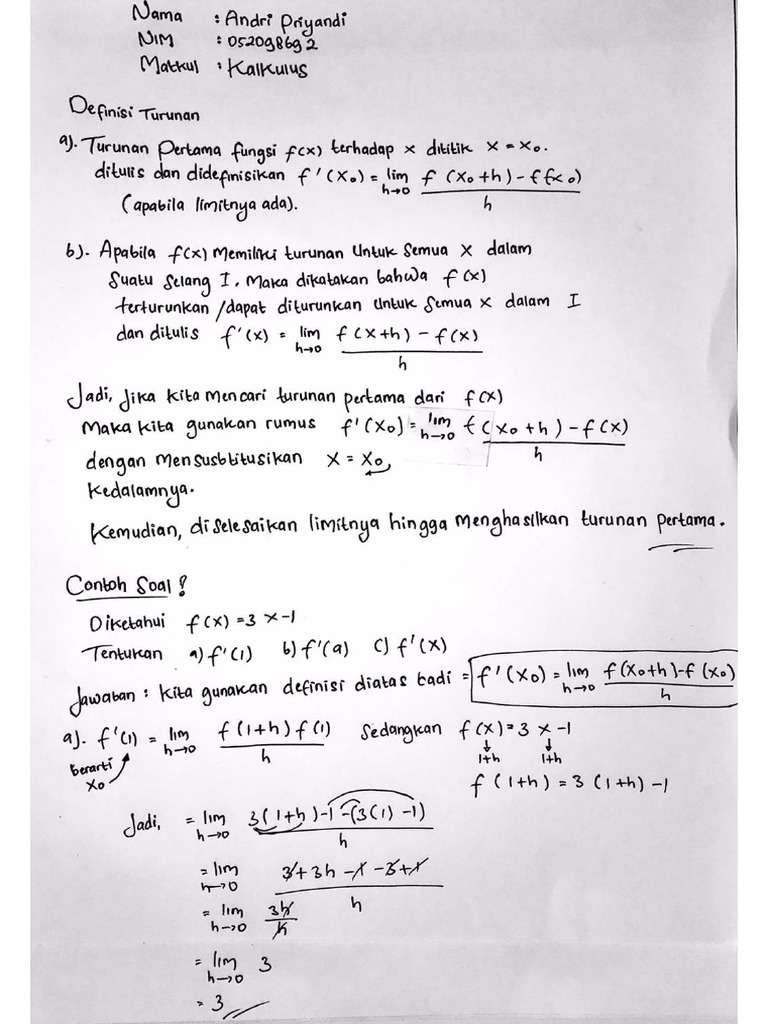 Nama : Andri Priyandi
NIM : 052098692
Matkul : Kalkulus
Definisi Turunan
a). Turunan Pertama fungsi f(x) terhadap x dititik x = x₀.
ditulis dan didefinisikan f'(x₀) = lim h→0 f (x₀+h) - f(x₀) / h
(apabila limitnya ada).
b). Apabila f(x) Memiliki turunan Untuk Semua x dalam
Suatu Selang I, Maka dikatakan bahwa f(x)
terturunkan /dapat diturunkan Untuk Semua x dalam I
dan ditulis f'(x) = lim h→0 f(x+h) - f(x) / h
Jadi, Jika Kita Mencari turunan pertama dari f(x)
Maka Kita gunakan rumus f'(x₀) = lim h→0 f(x₀+h) - f(x) / h
dengan Mensusbtitusikan x = x₀,
Kedalamnya.
Kemudian, diselesaikan limitnya hingga Menghasilkan turunan pertama.
Contoh Soal?
Diketahui f(x) = 3x-1
Tentukan a) f'(1) b) f'(a) c) f'(x)
Jawaban : Kita gunakan definisi diatas tadi = f'(x₀) = lim h→0 f(x₀+h)-f(x₀) / h
a). f'(1) = lim h→0 f(1+h) f(1) / h Sedangkan f(x) = 3x-1
berarti x₀ ↓ 1+h ↓ 1+h
f(1+h) = 3(1+h)-1
Jadi, = lim h→0 3(1+h)-1-(3(1)-1) / h
= lim h→0 3+3h-1-3+1 / h
= lim h→0 3h / h
= lim h→0 3
= 3